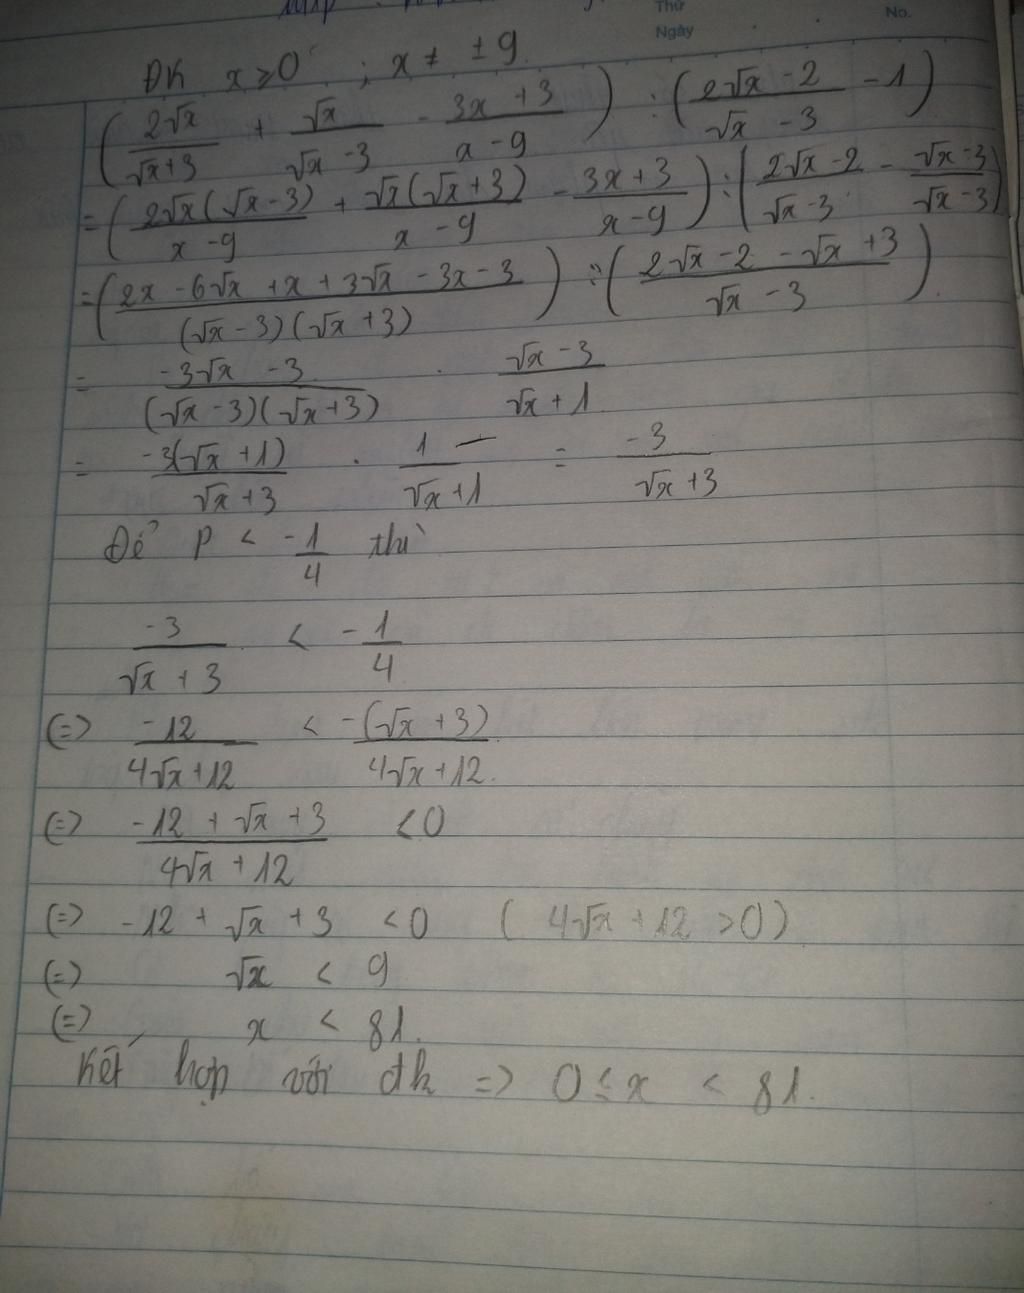 Thứ
Ngày
No.
ĐK x ≥ 0 ; x ≠ ± 9
( 2√x / (√x + 3) + √x / (√x - 3) - (3x + 3) / (x - 9) ) : ( (2√x - 2) / (√x - 3) - 1 )
= ( 2√x(√x - 3) / (x - 9) + √x(√x + 3) / (x - 9) - (3x + 3) / (x - 9) ) : ( (2√x - 2) / (√x - 3) - (√x - 3) / (√x - 3) )
= ( (2x - 6√x + x + 3√x - 3x - 3) / (√x - 3)(√x + 3) ) : ( (2√x - 2 - √x + 3) / (√x - 3) )
= (-3√x - 3) / (√x - 3)(√x + 3) . (√x - 3) / (√x + 1)
= -3(√x + 1) / (√x + 3) . 1 / (√x + 1) = -3 / (√x + 3)
Để P < -1/4 thì
-3 / (√x + 3) < -1/4
(=) -12 / (4√x + 12) < -(√x + 3) / (4√x + 12)
(=) (-12 + √x + 3) / (4√x + 12) < 0
(=) -12 + √x + 3 < 0 ( 4√x + 12 > 0 )
(=) √x < 9
(=) x < 81.
Kết hợp với đk => 0 ≤ x < 81.